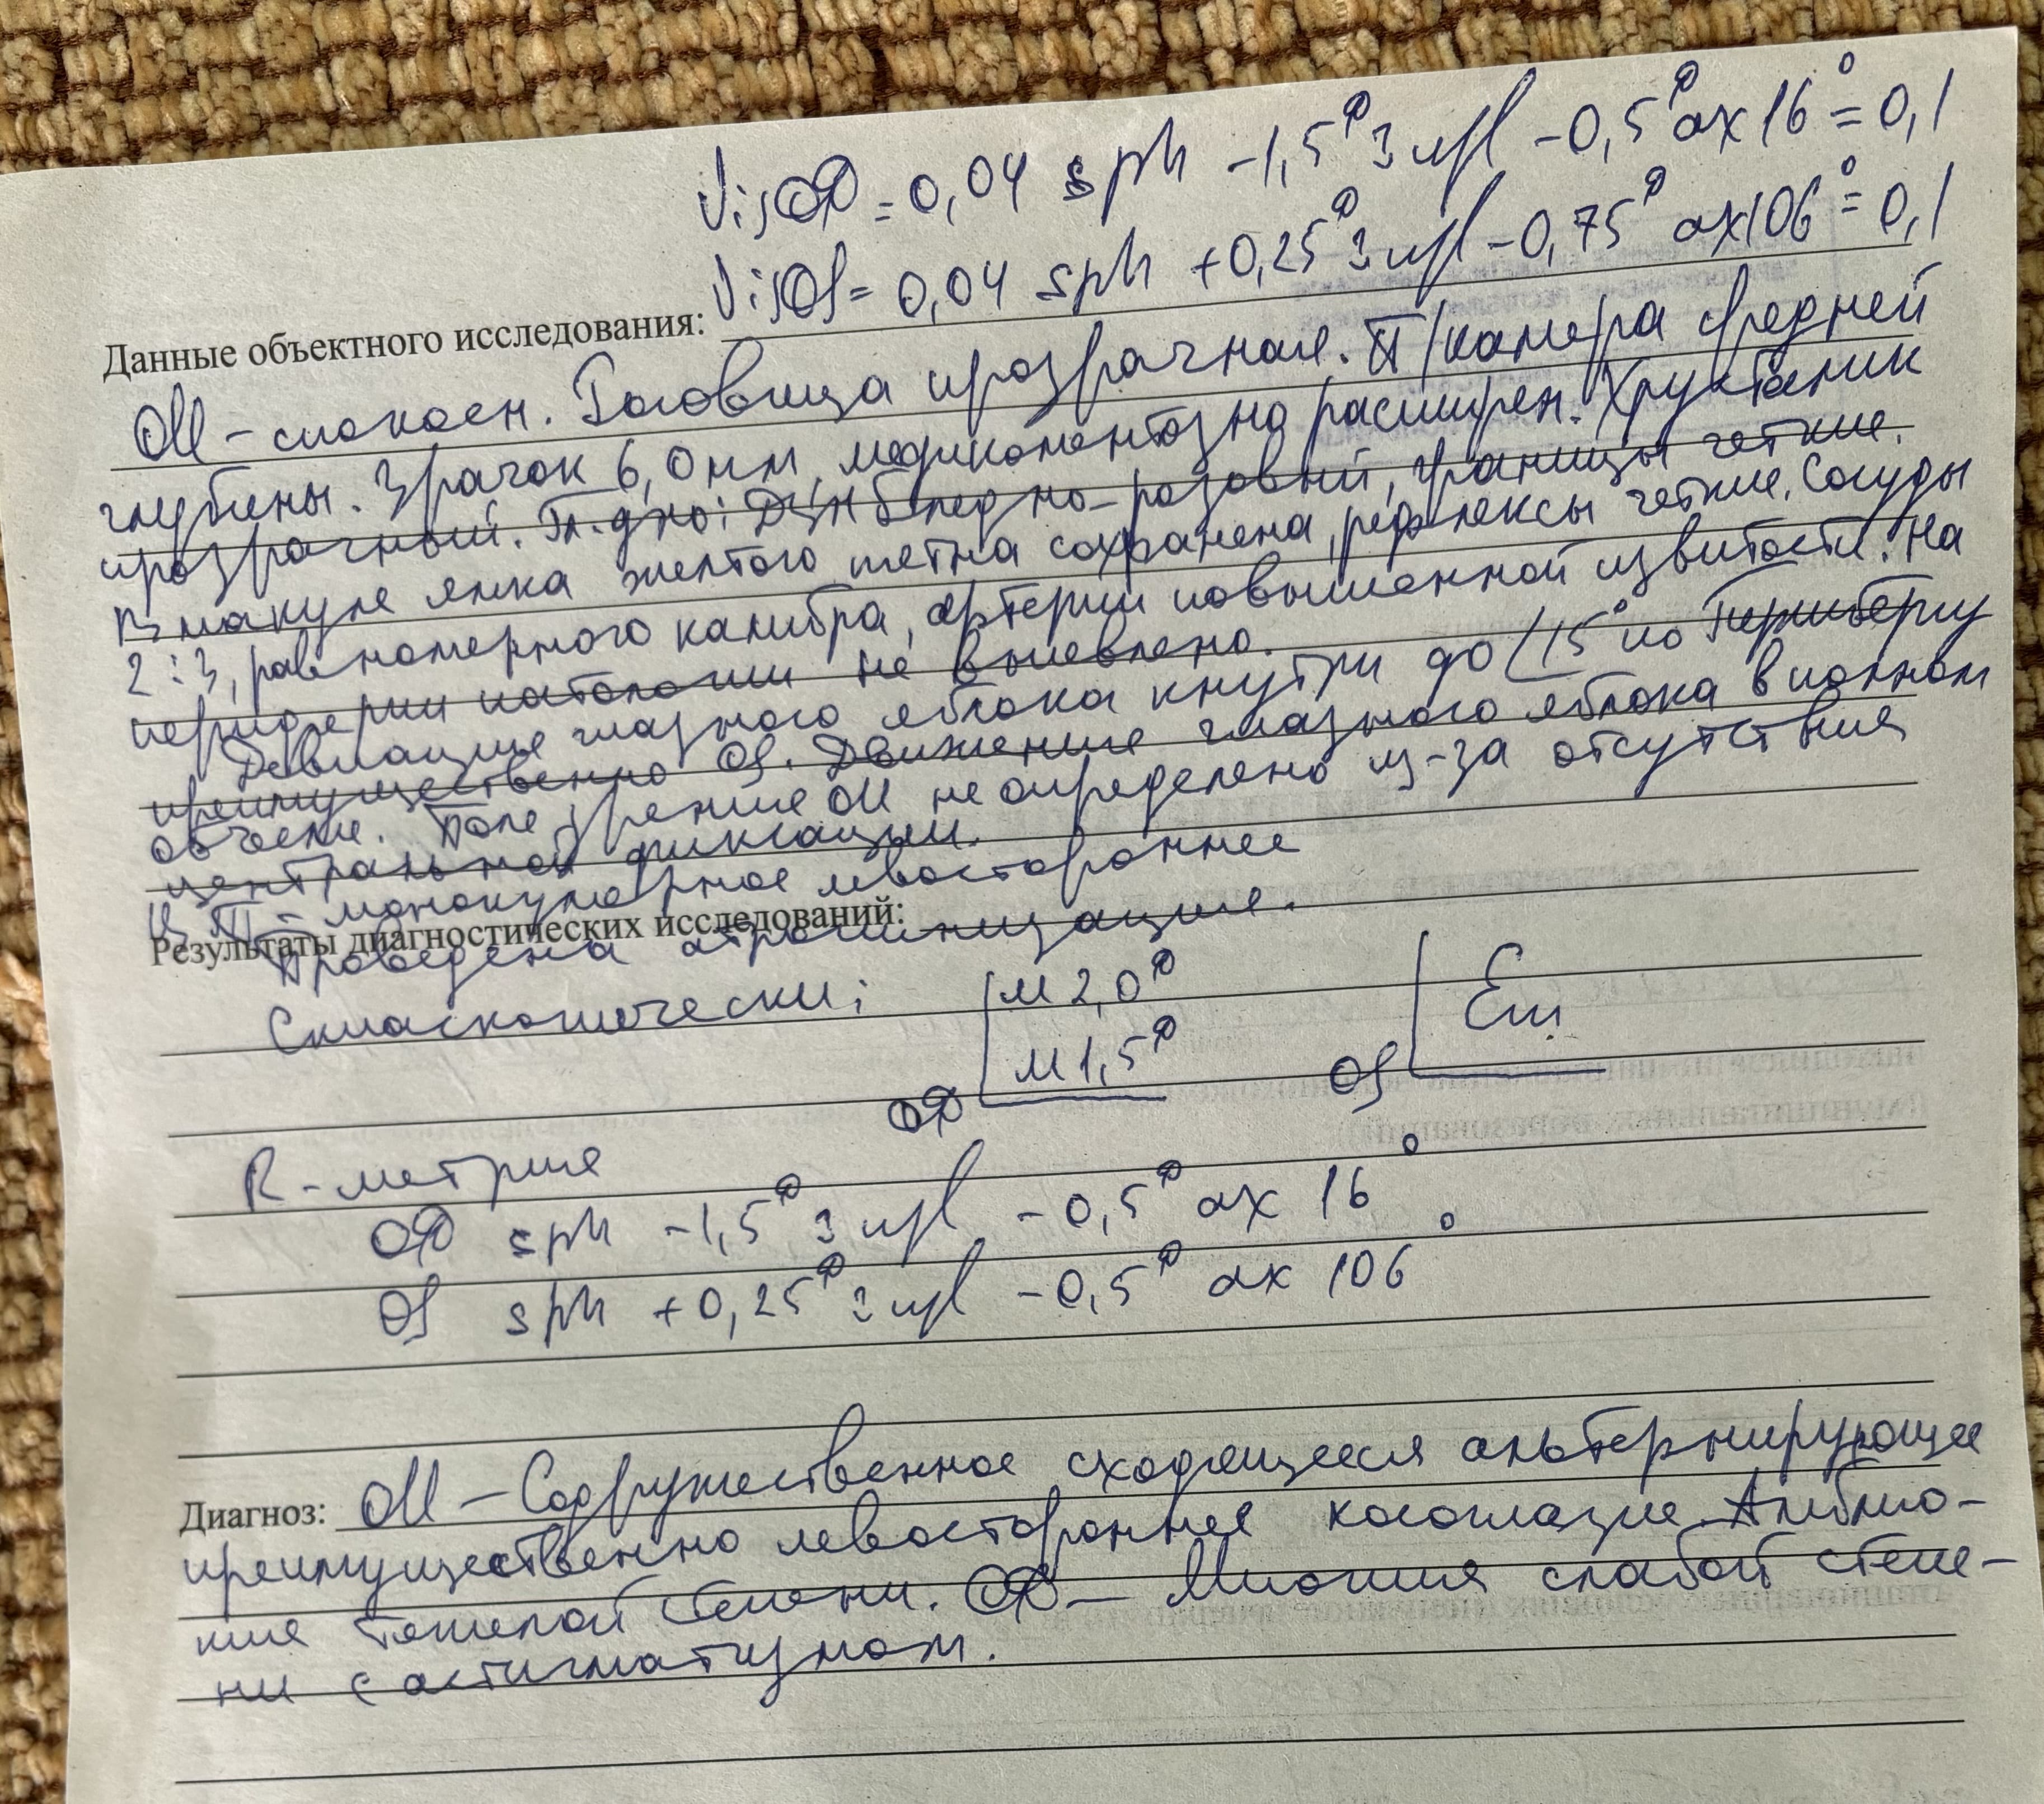 VisOD = 0,04 sph -1,5ᴰ cyl -0,5ᴰ ax 16° = 0,1
VisOS = 0,04 sph +0,25ᴰ cyl -0,75ᴰ ax 106° = 0,1
Данные объектного исследования:
OU – спокоен. Роговица прозрачная. П/камера средней
глубины. Зрачок 6,0 мм, медикаментозно расширен. Хрусталик
прозрачный. Гл. дно: ДЗН бледно-розовый, границы четкие.
В макуле ямка желтого пятна сохранена, рефлексы четкие. Сосуды
2:3, равномерного калибра, артерии повышенной извитости. На
периферии патологии не выявлено.
Девиация глазного яблока кнутри до 15° по Гиршбергу
преимущественно OS. Движение глазного яблока в полном
объеме. Поле зрения OU не определено из-за отсутствия
центральной фиксации.
– монокулярное левостороннее
Результаты диагностических исследований:
Проведена атропинизация.
Скиаскопически:
OD М 2,0ᴰ
М 1,5ᴰ
OS Em
R-метрия
OD sph -1,5ᴰ cyl -0,5ᴰ ax 16°
OS sph +0,25ᴰ cyl -0,5ᴰ ax 106°
Диагноз: OU – Содружественное сходящееся альтернирующее
преимущественно левостороннее косоглазие. Амблио-
пия тяжелой степени. OD – Миопия слабой степе-
ни с астигматизмом.